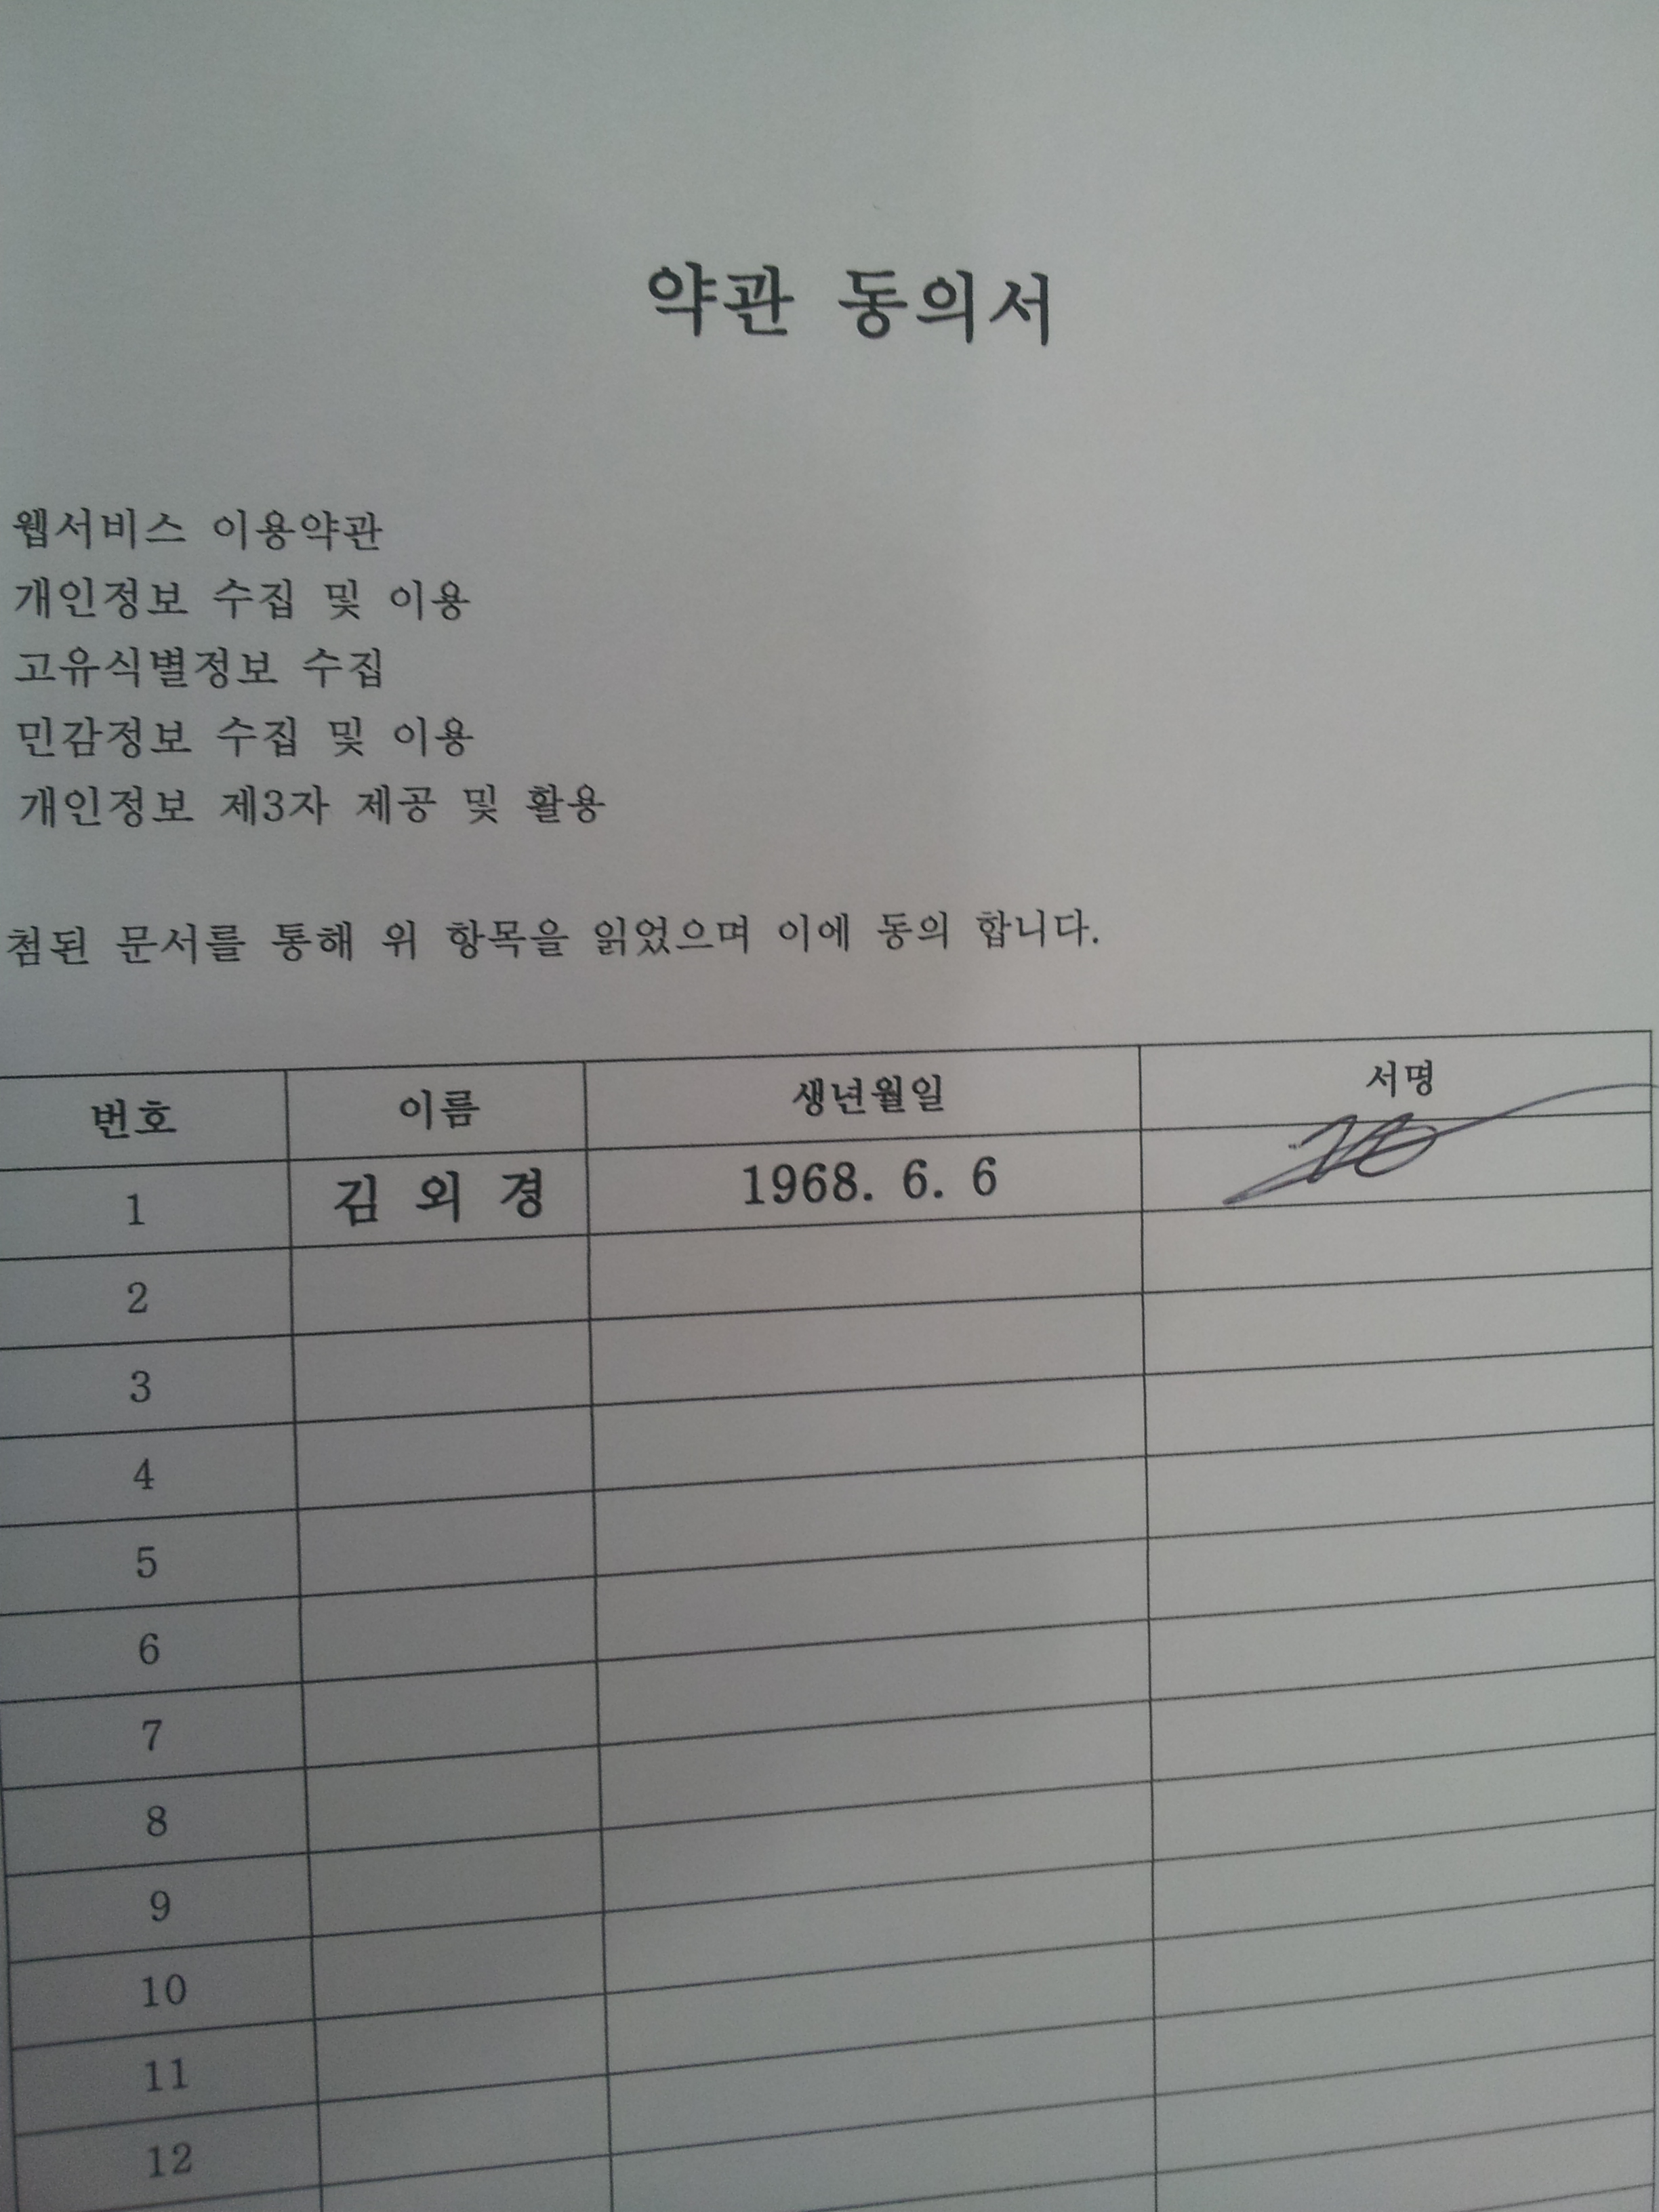 약관 동의서
웹서비스 이용약관
개인정보 수집 및 이용
고유식별정보 수집
민감정보 수집 및 이용
개인정보 제3자 제공 및 활용
첨된 문서를 통해 위 항목을 읽었으며 이에 동의 합니다.
번호 이름 생년월일 서명
1 김 외 경 1968. 6. 6
2
3
4
5
6
7
8
9
10
11
12